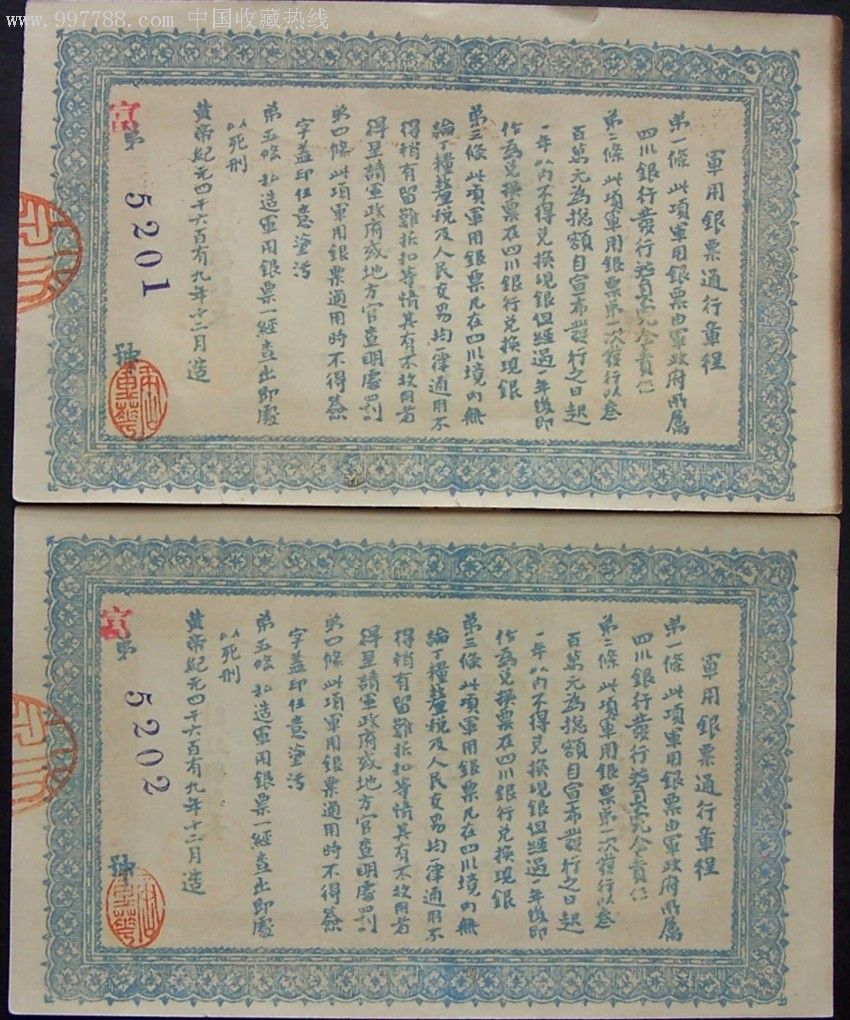 www.997788.com 中国收藏热线
軍用銀票通行章程
第一條 此項軍用銀票由軍政府所屬
四川銀行發行擔負完全責任
第二條 此項軍用銀票第一次發行以叁
百萬元為總額自宣布發行之日起
一年以内不得兑換現銀但經過一年後即
作為兑換票在四川銀行兑換現銀
第三條 此項軍用銀票凡在四川境内無
論丁糧釐税及人民交易均一律通用不
得稍有留難折扣等情其有不收用者
得呈請軍政府或地方官查明處罰
第四條 此項軍用銀票通用時不得簽
字蓋印任意塗污
第五條 私造軍用銀票一經查出即處
以死刑
黄帝紀元四千六百有九年十二月造
富
第 5201 號
軍用銀票通行章程
第一條 此項軍用銀票由軍政府所屬
四川銀行發行擔負完全責任
第二條 此項軍用銀票第一次發行以叁
百萬元為總額自宣布發行之日起
一年以内不得兑換現銀但經過一年後即
作為兑換票在四川銀行兑換現銀
第三條 此項軍用銀票凡在四川境内無
論丁糧釐税及人民交易均一律通用不
得稍有留難折扣等情其有不收用者
得呈請軍政府或地方官查明處罰
第四條 此項軍用銀票通用時不得簽
字蓋印任意塗污
第五條 私造軍用銀票一經查出即處
以死刑
黄帝紀元四千六百有九年十二月造
富
第 5202 號